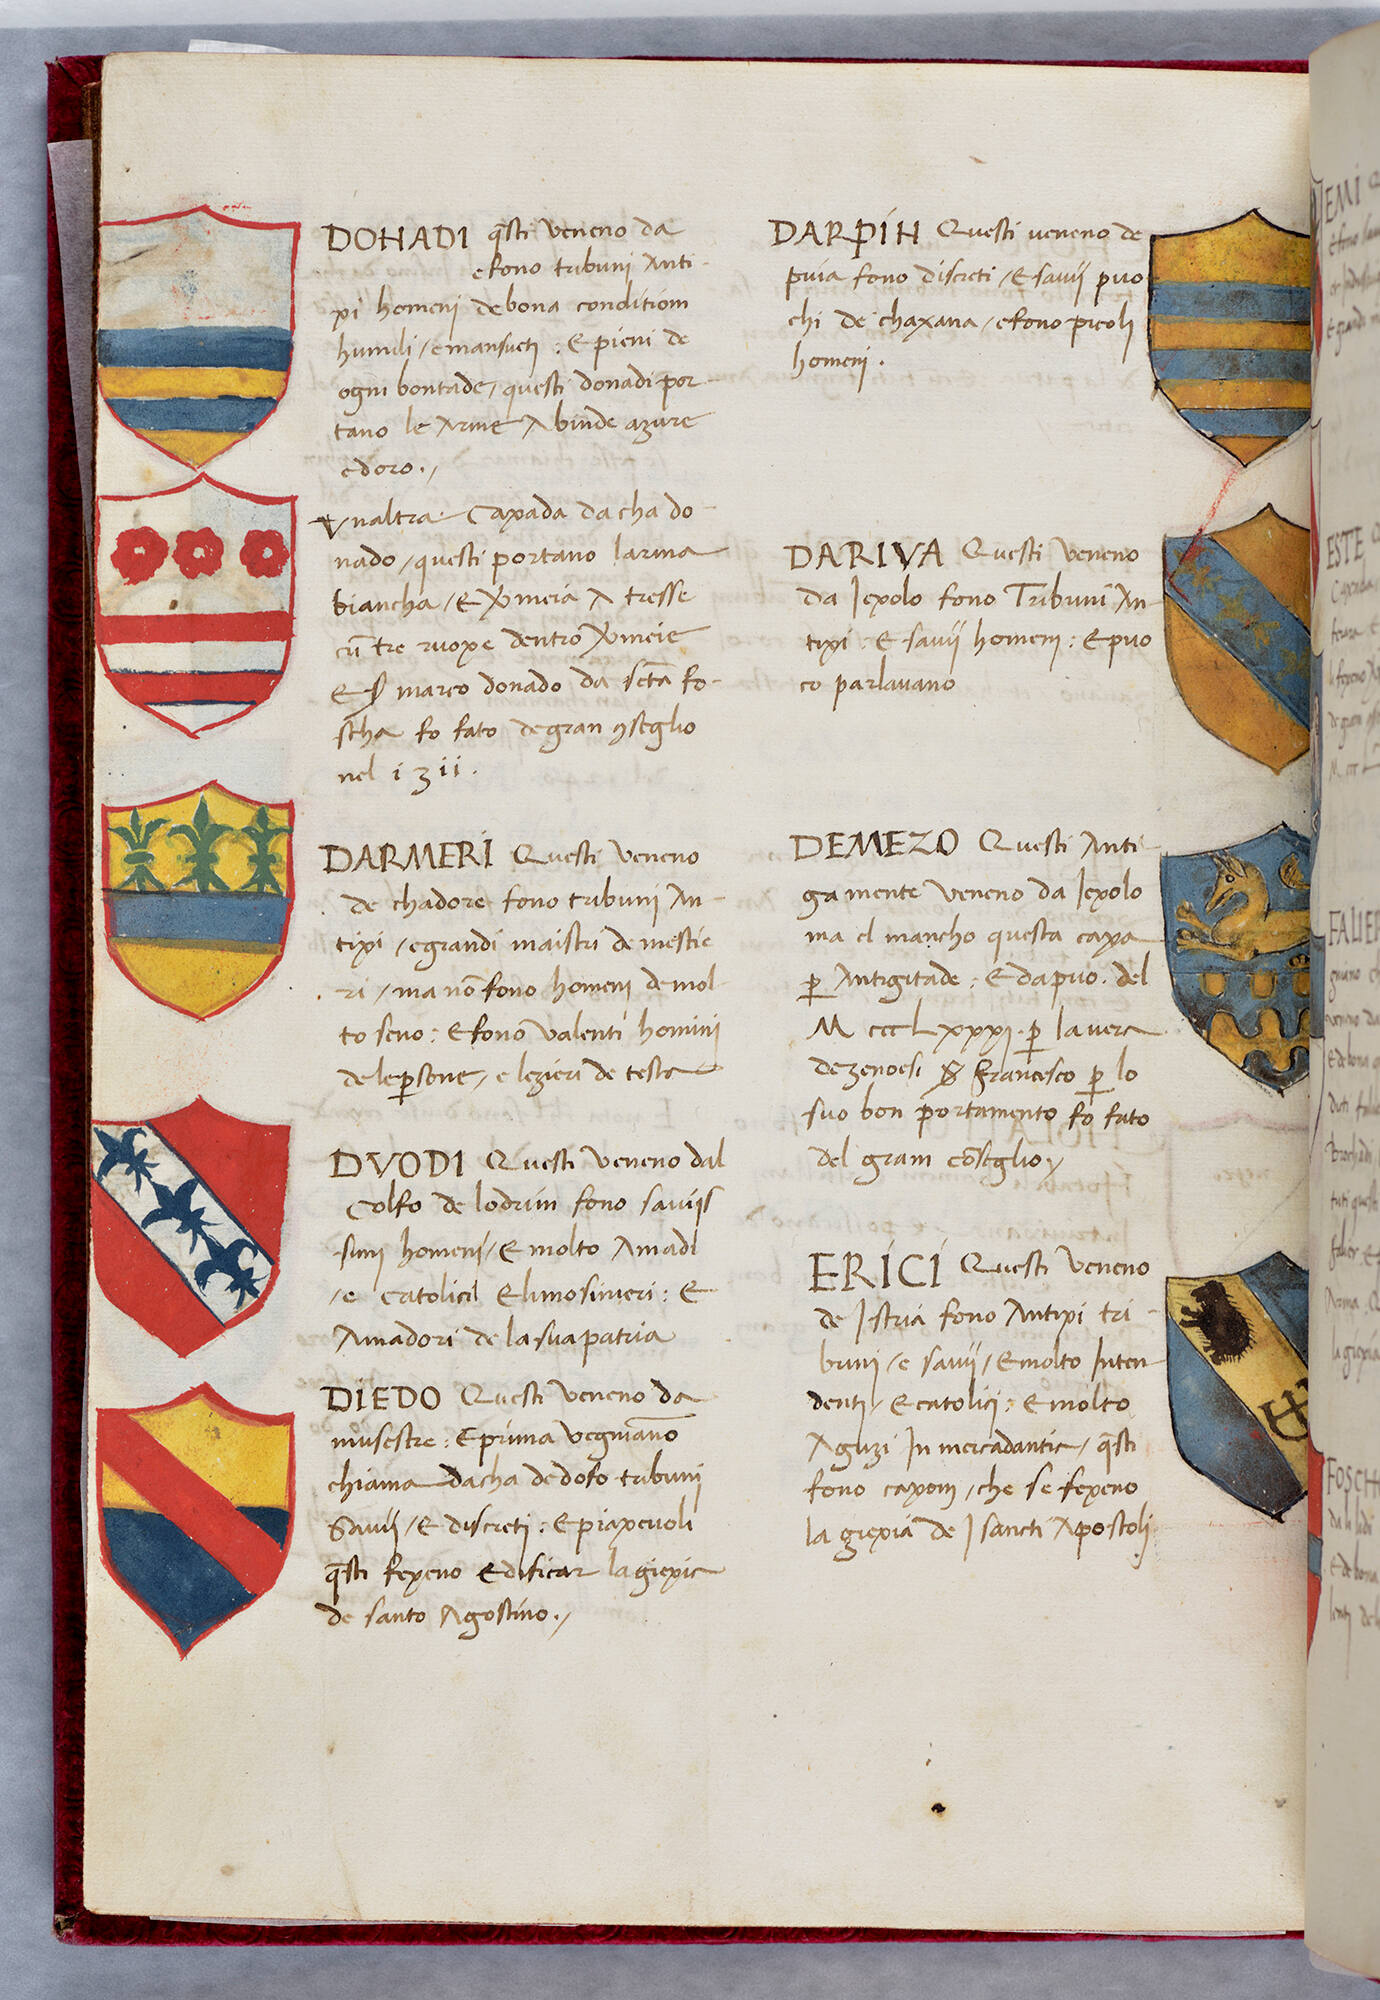 DONADI q̄sti veneno da
e fono tribuni Anti-
xi homeni de bona condition
humili / e mansueti : E pieni de
ogni bontade / questi donadi por-
tano le Arme A binde azure
e doro . /
Vnaltra Caxada da cha do-
nado / questi portano larma
biancha / E
A tresse
cū tre ruoxe dentro
E
marco donado da sc̄ta fo-
scha fo fato de gran 9seglio
nel 1311 .
DARMERI Questi veneno
de chadore fono tribuni An-
tixi / e grandi maistri de mestie
ri / ma nō fono homeni de mol
to seno : E fono valenti homini
de le ꝑsone / e lezieri de testa
DVODI Questi veneno dal
Colfo de lodrin fono saviis
simi homeni / E molto Amadi
/ e catolici Elimosinieri : E
Amadori de la sua patria
DIEDO Questi veneno da
musestre : E prima vegniano
chiama da cha de dofo tribuni
Savij / E discreti : E piaxevoli
q̄sti fexeno edificar la giexia
de santo Agostino . /
DARPIN Questi veneno de
puia fono discreti / E savij puo
chi de chaxana / e fono picoli
homeni .
DARIVA Questi veneno
da Iexolo fono Tribuni An-
tixi : E savij homeni : E puo
co parlavano
DEMEZO Questi Anti-
gamente veneno da Iexolo
ma el mancho questa caxa
ꝑ Antigitade : E da puo . del
M cccLxxxi . ꝑ la vera
de zenoesi
Francesco ꝑ lo
suo bon portamento fo fato
del gram cōseglio /
ERICI Questi veneno
de Istria fono Antixi tri-
buni / e savij / E molto Inten
denti / E catolici : E molto
Aguzi In mercadantie / q̄sti
fono caxoni / che se fexeno
la giexia de I sancti Apostoli
EMI
ESTE
FALIER
FOSCH